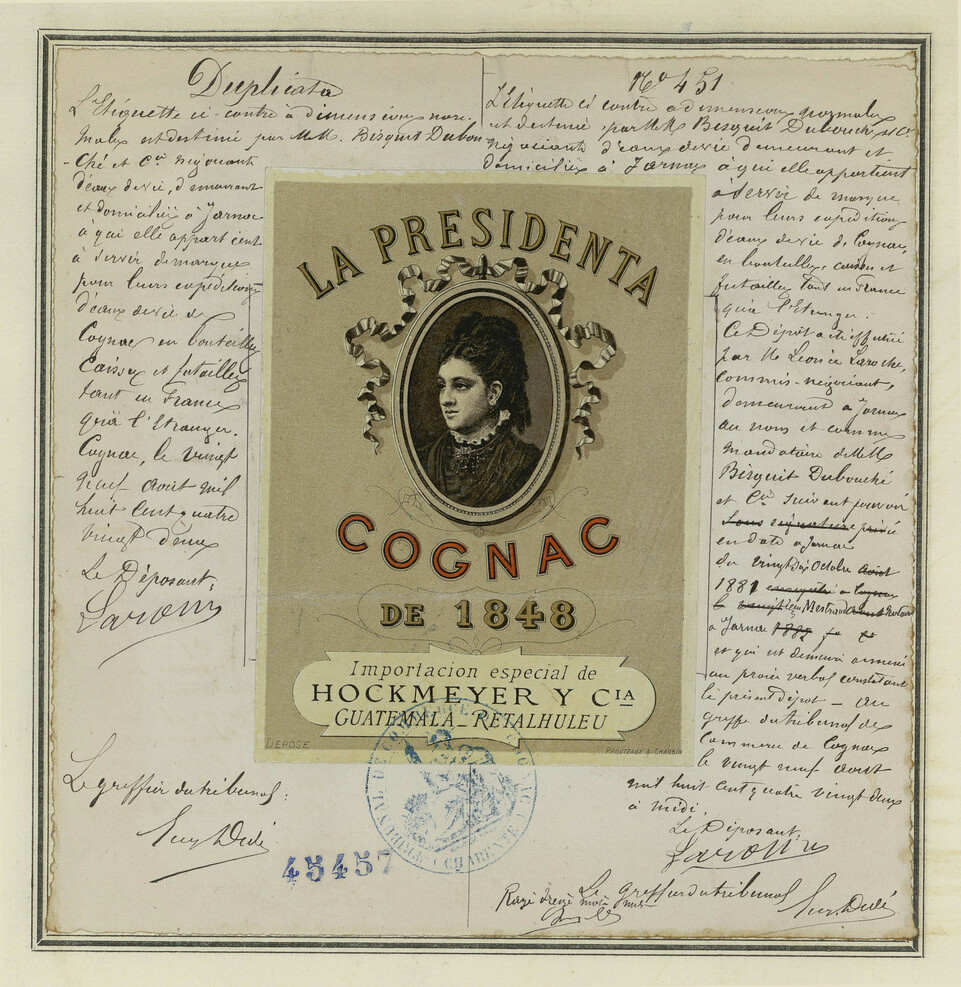 Duplicata
L'Etiquette ci-contre à dimensions nor-
males est destinée par M.M. Bisquit Dubou
-ché et Cie négociants
d'eaux de vie, demeurant
et domiciliés à Jarnac
à qui elle appartient
à servir de marque
pour leurs expéditions
d'eaux de vie de
Cognac en bouteilles
Caisses et futailles
tant en France
qu'à l'Etranger.
Cognac, le vingt
neuf Août mil
huit cent quatre
vingt deux
Le Déposant,
Laroche
Le greffier du tribunal:
No 451
L'Etiquette ci contre à dimensions normales
est destinée par MM Bisquit Dubouché et Cie
négociants d'eaux de vie demeurant et
domiciliés à Jarnac à qui elle appartient
à servir de marque
pour leurs expéditions
d'eaux de vie de Cognac
en bouteilles, caisses et
futailles tant en France
qu'à l'Etranger.
Ce Dépôt a été effectué
par M Léonce Laroche,
commis-négociant,
demeurant à Jarnac
au nom et comme
mandataire de MM
Bisquit Dubouché
et Cie suivant pouvoir
sous signature privée
en date à Jarnac
du vingt six Octobre Août
1881
à Jarnac 1882
et qui est demeuré annexé
au procès verbal constatant
le présent dépôt - au
greffe du tribunal de
Commerce de Cognac
le vingt neuf août
mil huit cent quatre vingt deux
à midi.
Le Déposant,
Laroche
Le greffier du tribunal
Rayé treize mots nuls
LA PRESIDENTA
COGNAC
DE 1848
Importacion especial de
HOCKMEYER Y CIA
GUATEMALA_RETALHULEU
DEPOSÉ
PROUTEAUX & CHAUBIN
TRIBUNAL DE COMMERCE DE COGNAC (CHARENTE)
45457